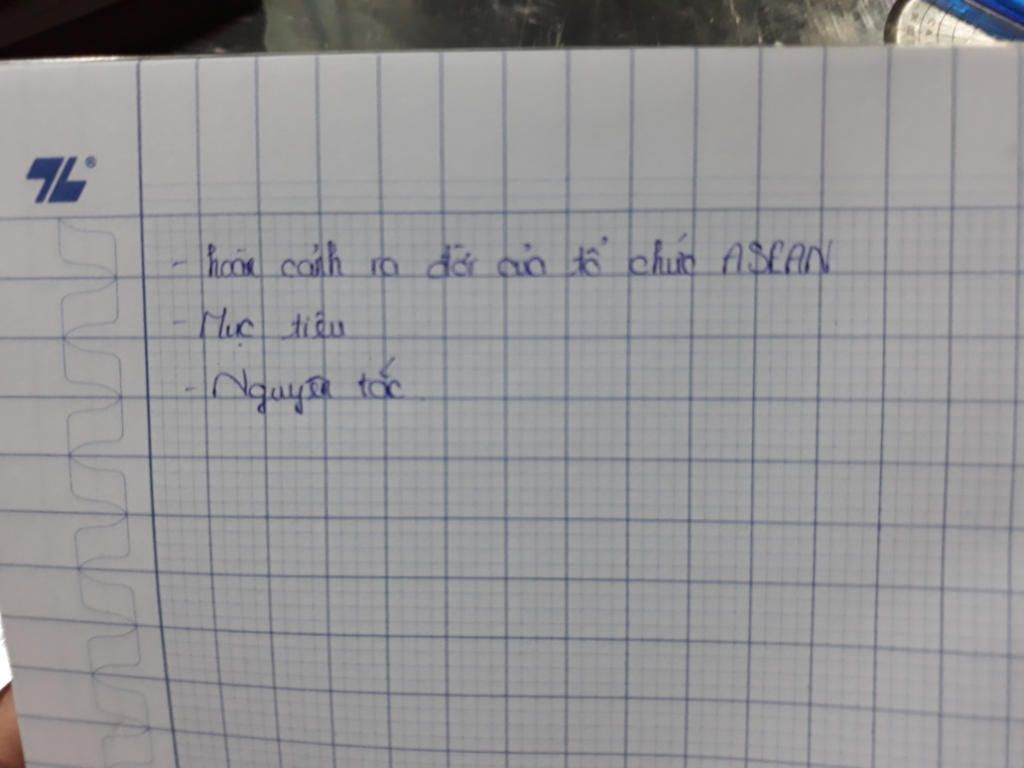 TL®
- hoàn cảnh ra đời của tổ chức ASEAN
- Mục tiêu
- Nguyên tắc